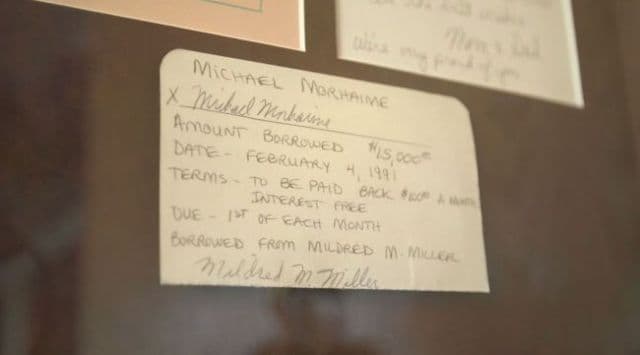 MICHAEL MORHAIME
X Michael Morhaime
AMOUNT BORROWED $15,000⁰⁰
DATE - FEBRUARY 4, 1991
TERMS - TO BE PAID BACK $100⁰⁰ A MONTH
INTEREST FREE
DUE - 1ST OF EACH MONTH
BORROWED FROM MILDRED M. MILLER
Mildred M. Miller
Mom & Dad
We're very proud of you